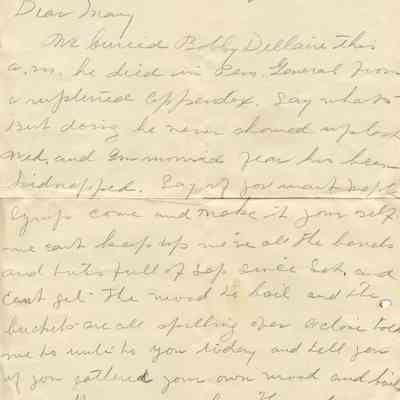 Dear Mary
We buried Bobby Dellaire this
a.m. he died in Pen. General from
a ruptured appendex. Say whats
Burt doing he never showed up last
Wed. and Im worried fear his been
kidnapped. Say if you want maple
syrup come and make it your self
we cant keep up we're all the hands
and tubs full of sap since Sat. and
Cant get the wood to boil and the
buckets are all spilling over
me to write to you today and tell you
if you gathered your own wood and